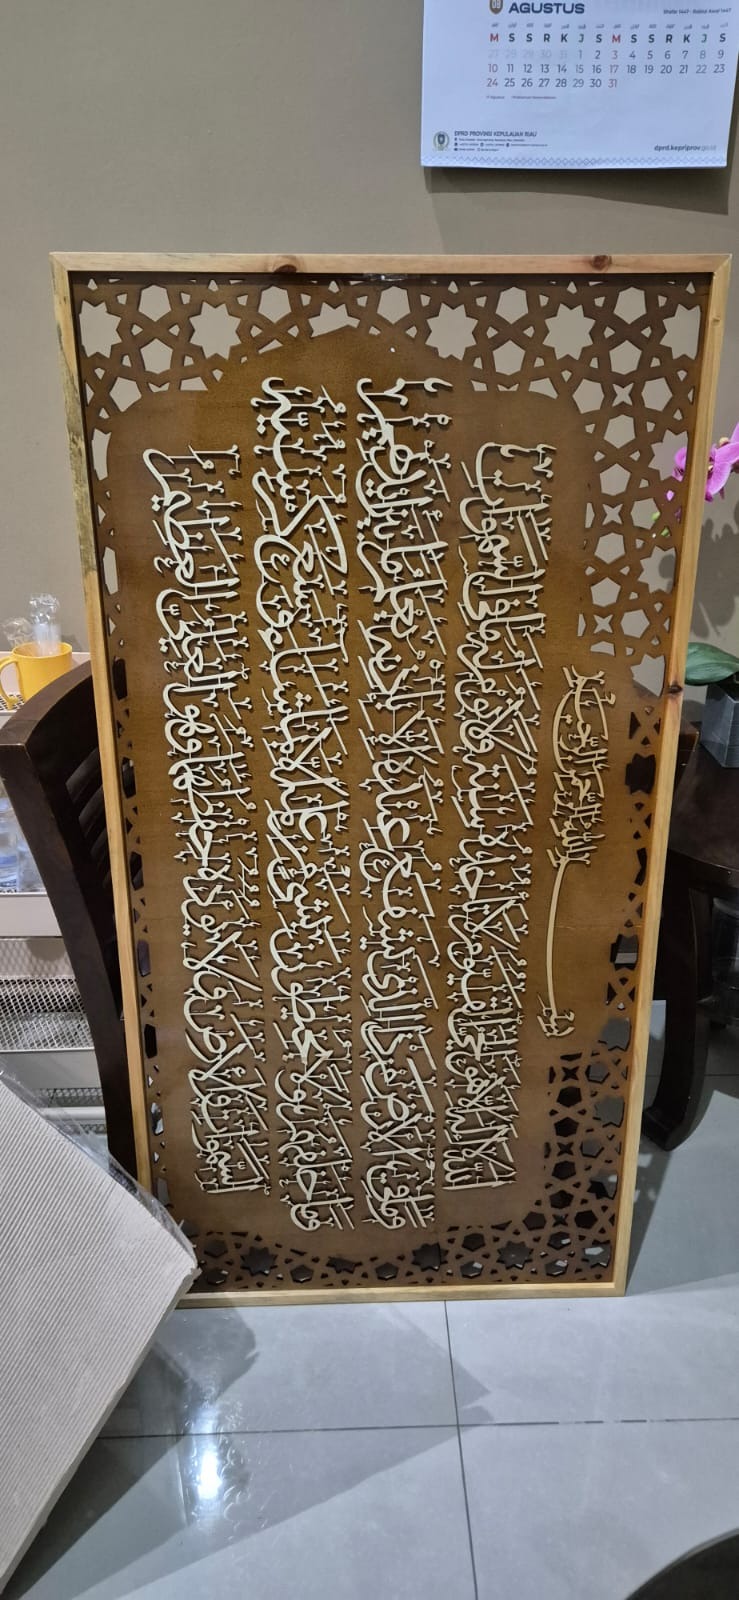 08 AGUSTUS
M S S R K J S M S S R K J S
27 28 29 30 31 1 2 3 4 5 6 7 8 9
10 11 12 13 14 15 16 17 18 19 20 21 22 23
24 25 26 27 28 29 30 31
DPRD PROVINSI KEPULAUAN RIAU
dprd.kepriprov.go.id
بسم الله الرحمن الرحيم
الله لا إله إلا هو الحي القيوم لا تأخذه سنة ولا نوم له ما في السموات
وما في الأرض من ذا الذي يشفع عنده إلا بإذنه يعلم ما بين أيديهم
وما خلفهم ولا يحيطون بشيء من علمه إلا بما شاء وسع كرسيه
السموات والأرض ولا يؤده حفظهما وهو العلي العظيم